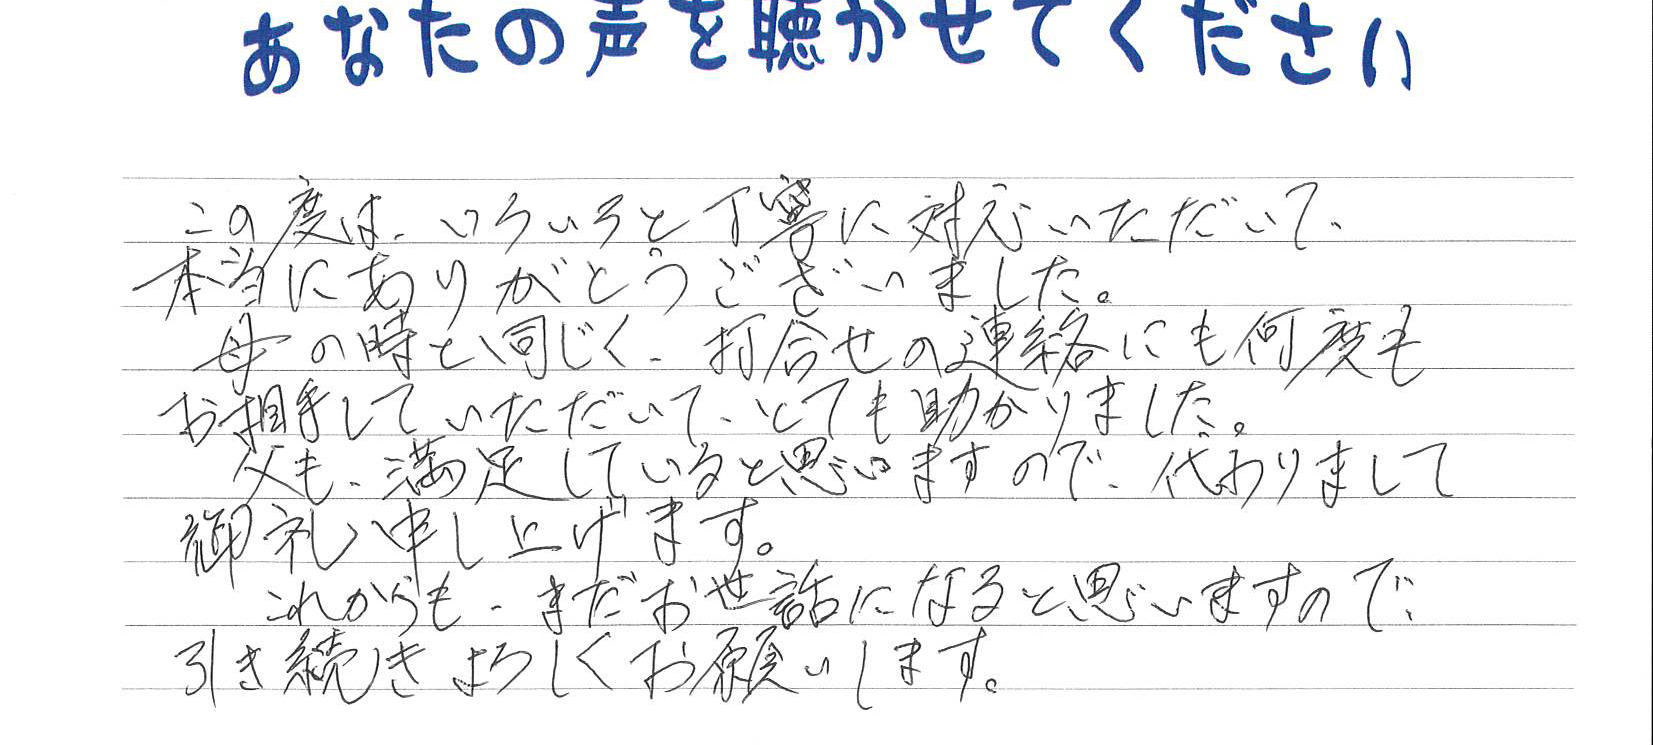 あなたの声を聴かせてください
この度は、いろいろと丁寧に対応いただいて、
本当にありがとうございました。
母の時と同じく、打合せの連絡にも何度も
お相手していただいて、とても助かりました。
父も、満足していると思いますので、代わりまして
御礼申し上げます。
これからも、まだお世話になると思いますので、
引き続きよろしくお願いします。